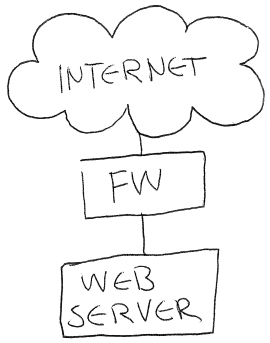 INTERNET
FW
WEB
SERVER